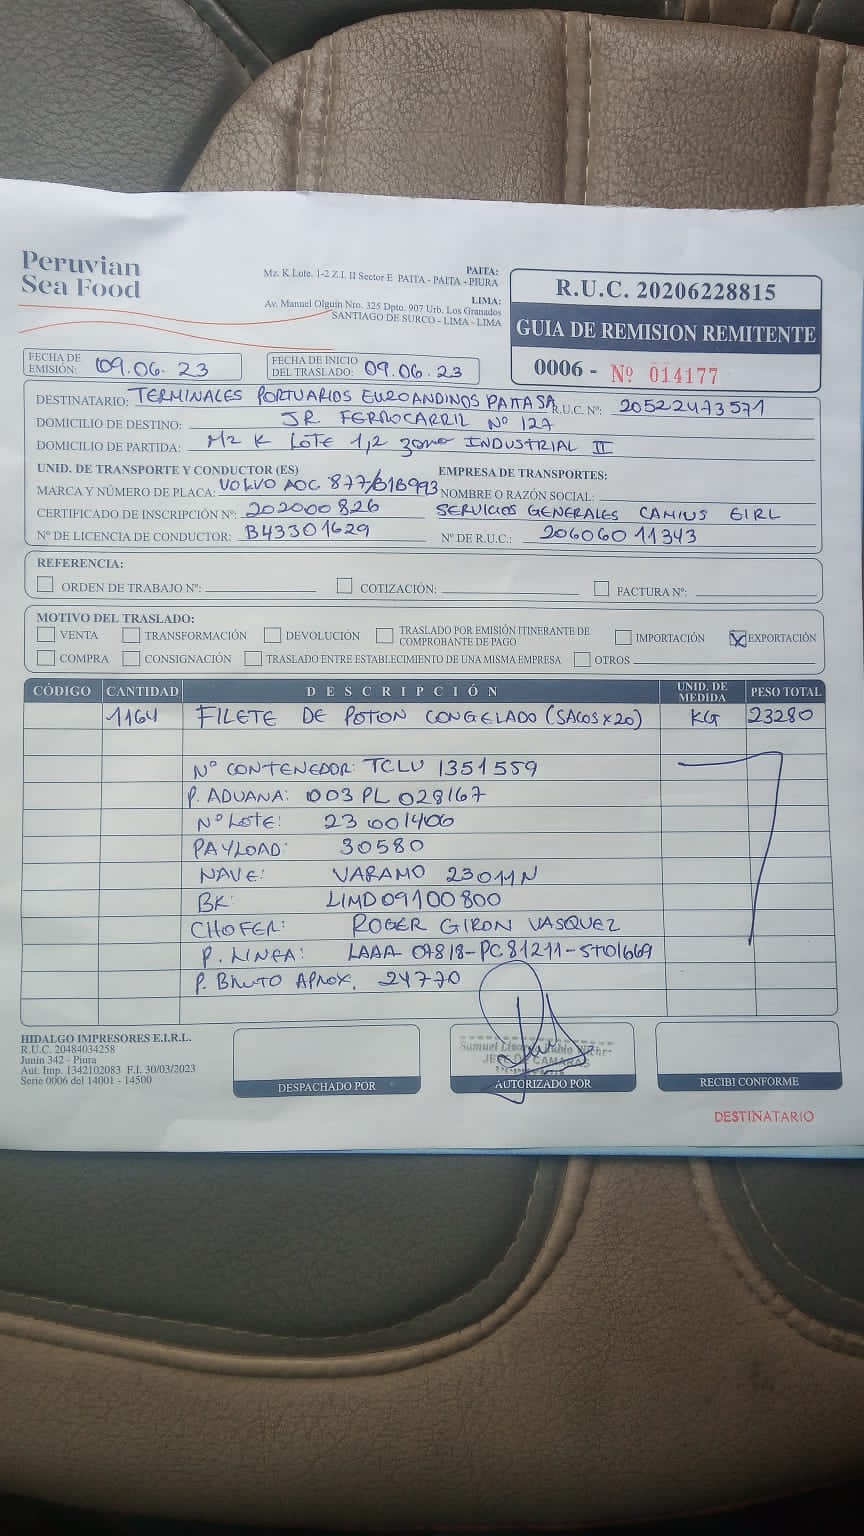 Peruvian
Sea Food
PAITA:
Mz. K Lote. 1-2 Z.I. II Sector E PAITA - PAITA - PIURA
LIMA:
Av. Manuel Olguin Nro. 325 Dpto. 907 Urb. Los Granados
SANTIAGO DE SURCO - LIMA - LIMA
R.U.C. 20206228815
GUIA DE REMISION REMITENTE
0006 - Nº 014177
FECHA DE EMISIÓN: 09.06.23
FECHA DE INICIO DEL TRASLADO: 09.06.23
DESTINATARIO: TERMINALES PORTUARIOS EUROANDINOS PAITA SA R.U.C. Nº: 20522473571
DOMICILIO DE DESTINO: JR FERROCARRIL Nº 127
DOMICILIO DE PARTIDA: Mz K LOTE 1,2 zona INDUSTRIAL II
UNID. DE TRANSPORTE Y CONDUCTOR (ES) EMPRESA DE TRANSPORTES:
MARCA Y NÚMERO DE PLACA: VOLVO AOC 877/B1B993 NOMBRE O RAZÓN SOCIAL:
CERTIFICADO DE INSCRIPCIÓN Nº: 202000826 SERVICIOS GENERALES CAMIUS EIRL
Nº DE LICENCIA DE CONDUCTOR: B43301629 Nº DE R.U.C.: 20606011343
REFERENCIA:
ORDEN DE TRABAJO Nº: COTIZACIÓN: FACTURA Nº:
MOTIVO DEL TRASLADO:
VENTA TRANSFORMACIÓN DEVOLUCIÓN TRASLADO POR EMISIÓN ITINERANTE DE COMPROBANTE DE PAGO IMPORTACIÓN X EXPORTACIÓN
COMPRA CONSIGNACIÓN TRASLADO ENTRE ESTABLECIMIENTO DE UNA MISMA EMPRESA OTROS
CÓDIGO CANTIDAD DESCRIPCIÓN UNID. DE MEDIDA PESO TOTAL
1164 FILETE DE POTON CONGELADO (SACOS x 20) KG 23280
Nº CONTENEDOR: TCLU 1351559
P. ADUANA: 003 PL 028167
Nº LOTE: 23 001406
PAYLOAD: 30580
NAVE: VARAMO 23011N
BK: LIMD09100800
CHOFER: ROGER GIRON VASQUEZ
P. LINEA: LAAA 07818-PC81211-STO1669
P. BRUTO APROX. 24770
HIDALGO IMPRESORES E.I.R.L.
R.U.C. 20484034258
Junín 342 - Piura
Aut. Imp. 1342102083 F.I. 30/03/2023
Serie 0006 del 14001 - 14500
DESPACHADO POR
Samuel
JEFE DE CAMARAS
AUTORIZADO POR
RECIBI CONFORME
DESTINATARIO